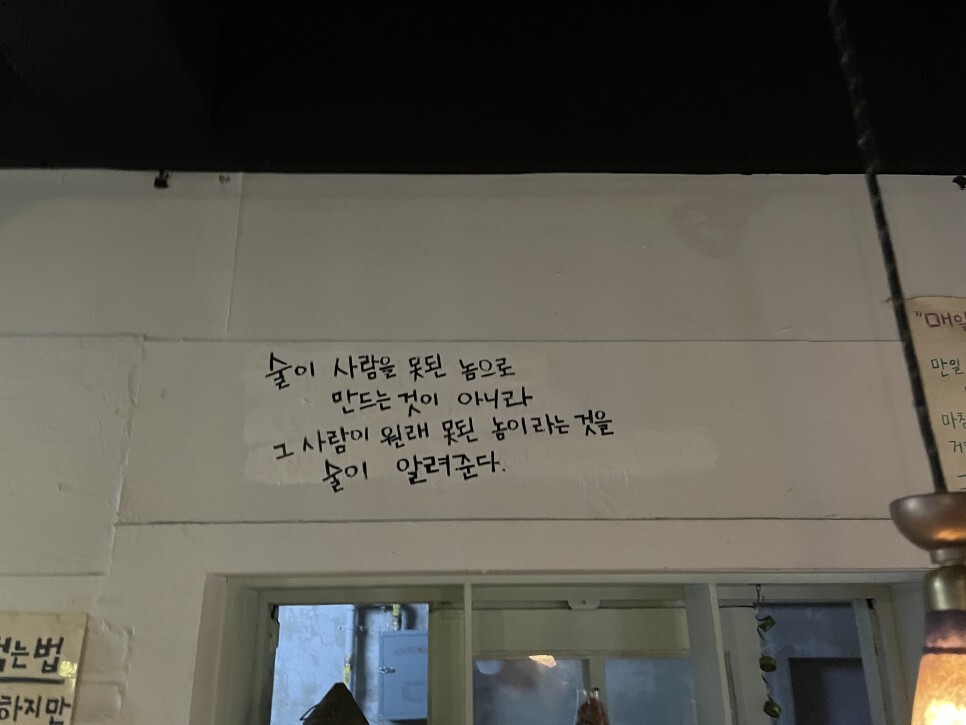 술이 사람을 못된 놈으로
만드는것이 아니라
그 사람이 원래 못된 놈이라는것을
술이 알려준다.
"매일
만일
는법
하지만